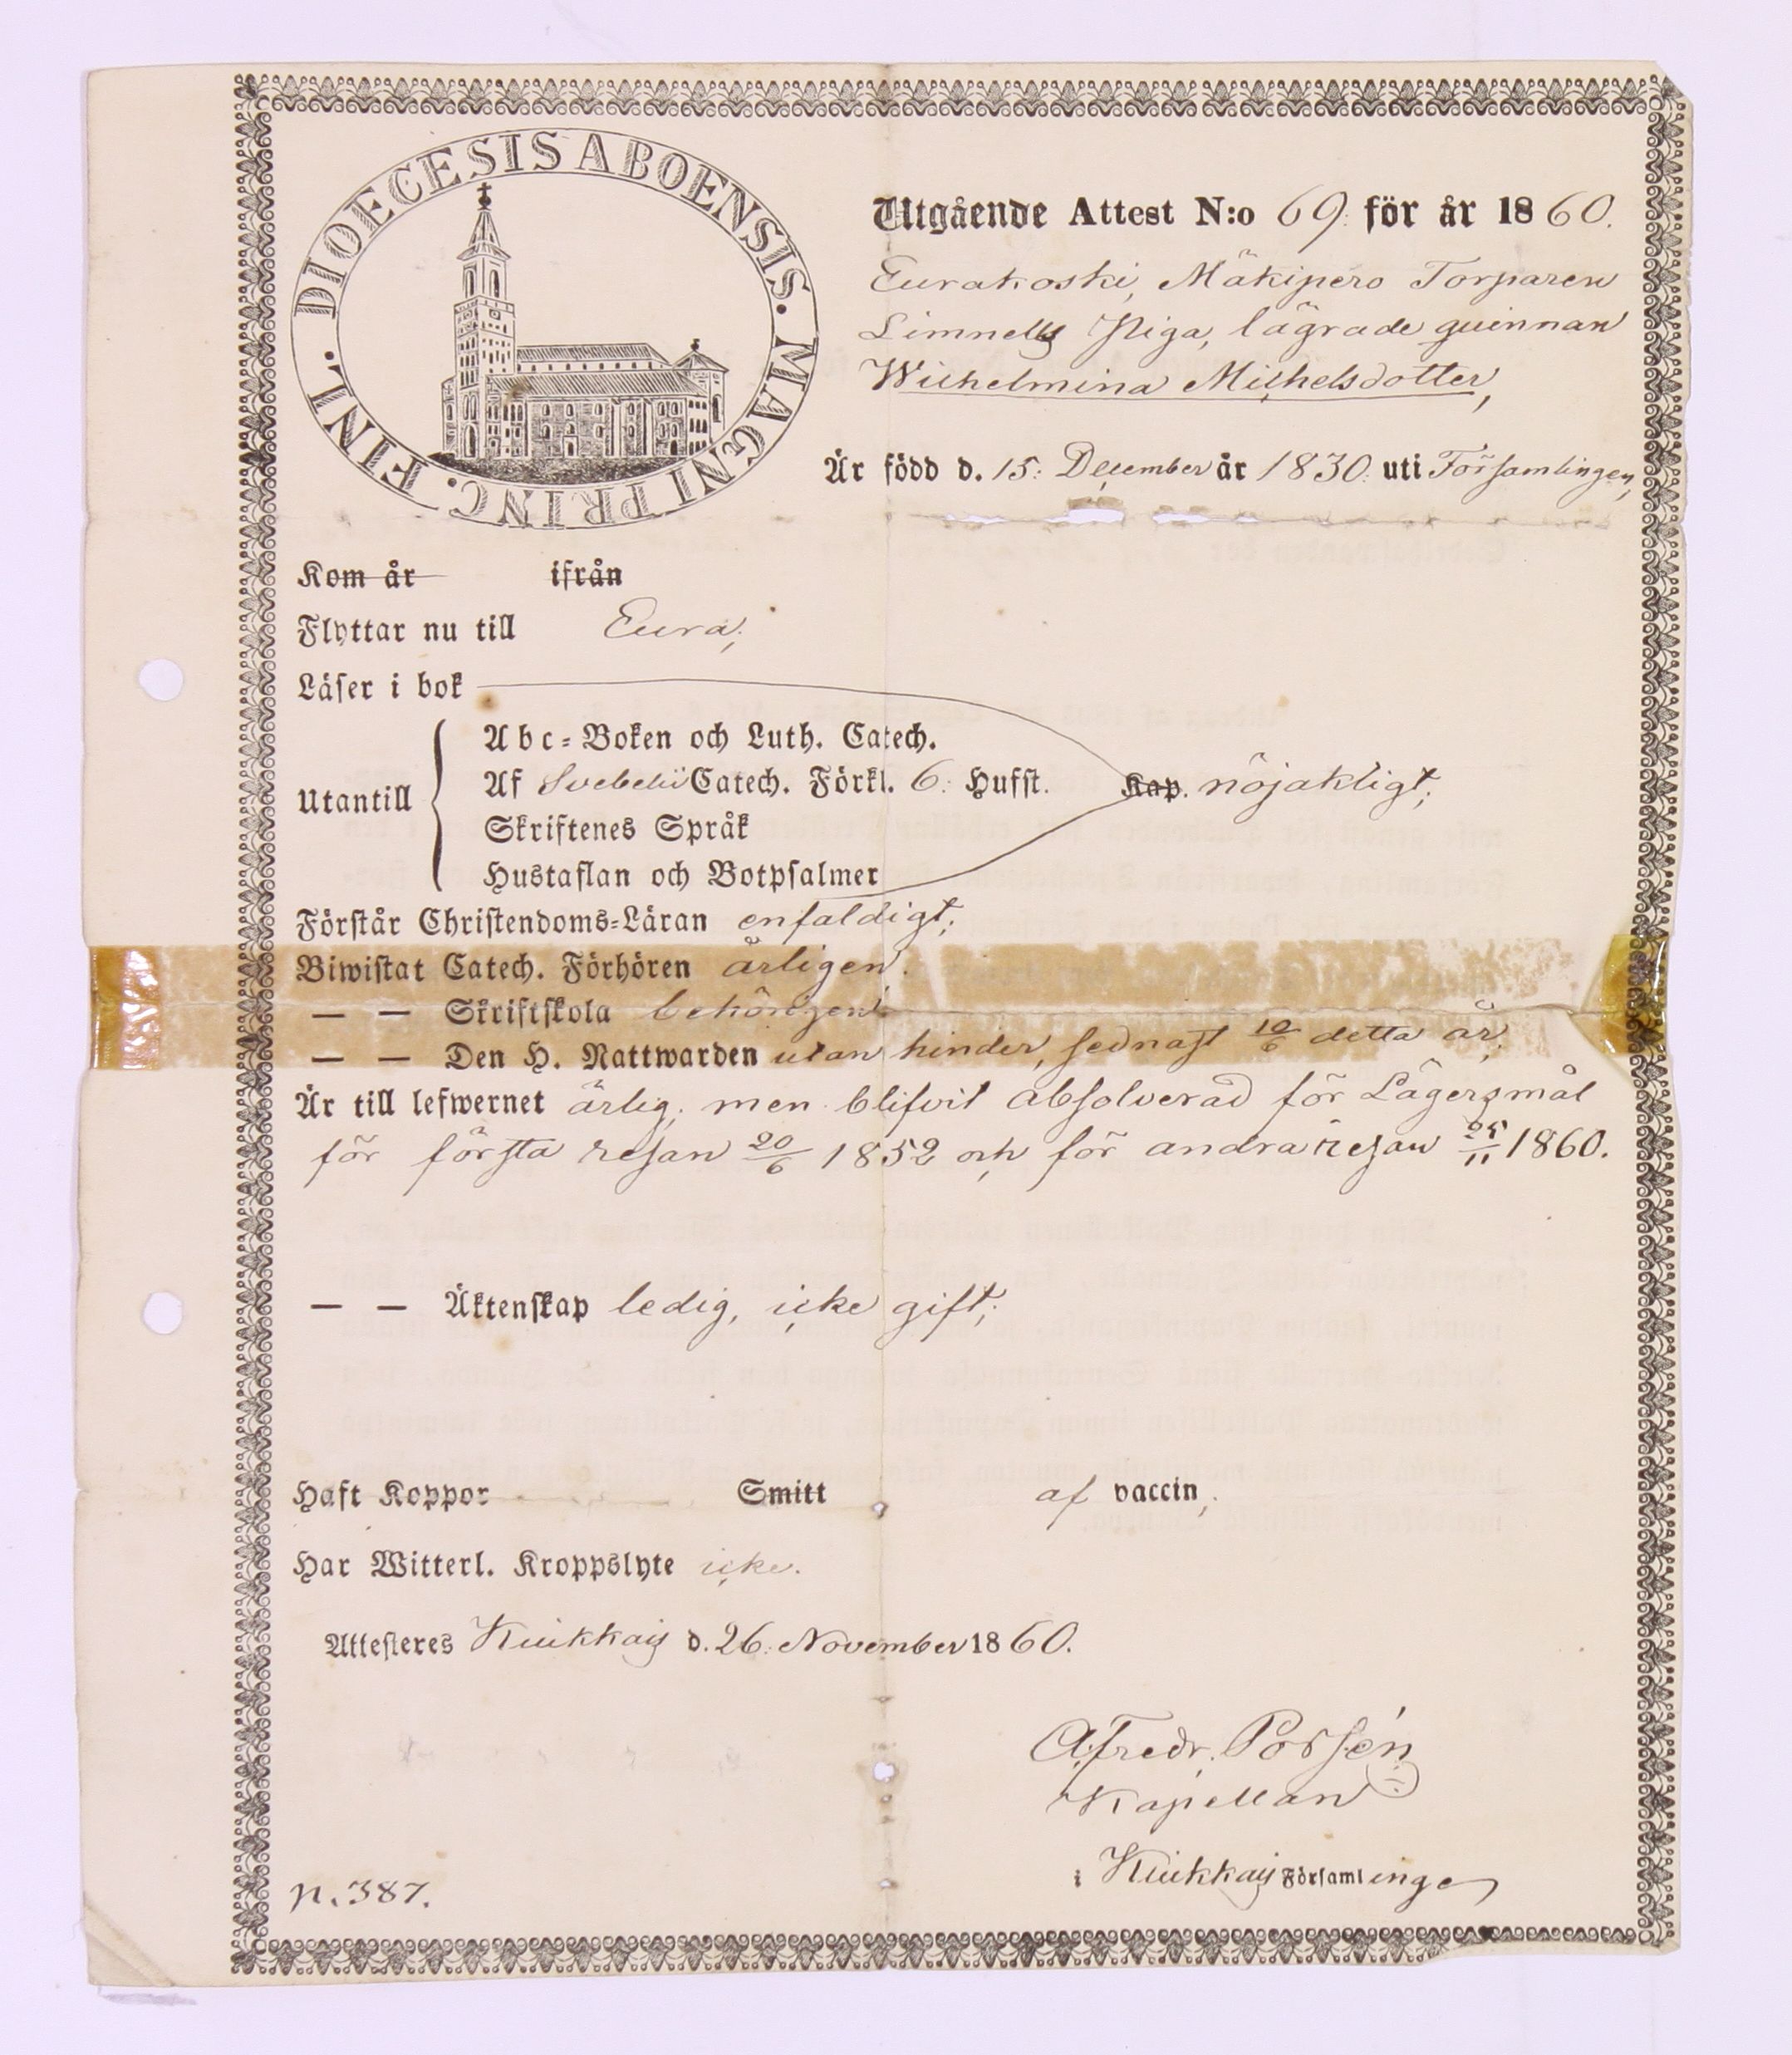 DIOECESIS ABOENSIS. MAGNI PRINC. FINL.
Utgående Attest N:o 69. för år 1860.
Eurakoski, Mäkipero Torparen
Limnells Piga, lägrade quinnan
Wilhelmina Michelsdotter,
Är född d. 15: December år 1830: uti Församlingen,
Kom år ifrån
Flyttar nu till Eura;
Läser i bok
Utantill
Abc-Boken och Luth. Catech.
Af Svebelii Catech. Förkl. 6: Hufst. Kap. nöjaktligt;
Skriftenes Språk
Hustaflan och Botpsalmer
Förstår Christendoms-Läran enfaldigt;
Biwistat Catech. Förhören årligen.
— — Skriftskola behörigen
— — Den H. Nattwarden utan hinder, sednast 10/6 detta år;
Är till lefwernet ärlig; men blifvit absolverad för Lägersmål
för första resan 20/6 1852 och för andra resan 25/11 1860.
— — Äktenskap ledig, icke gift;
Haft Koppor Smitt af vaccin,
Har Witterl. Kroppslyte icke.
Attesteres Kiukkais d. 26: November 1860.
A. Fredr. Porsén
Kapellan
i Kiukkais Församlinge
p. 387.